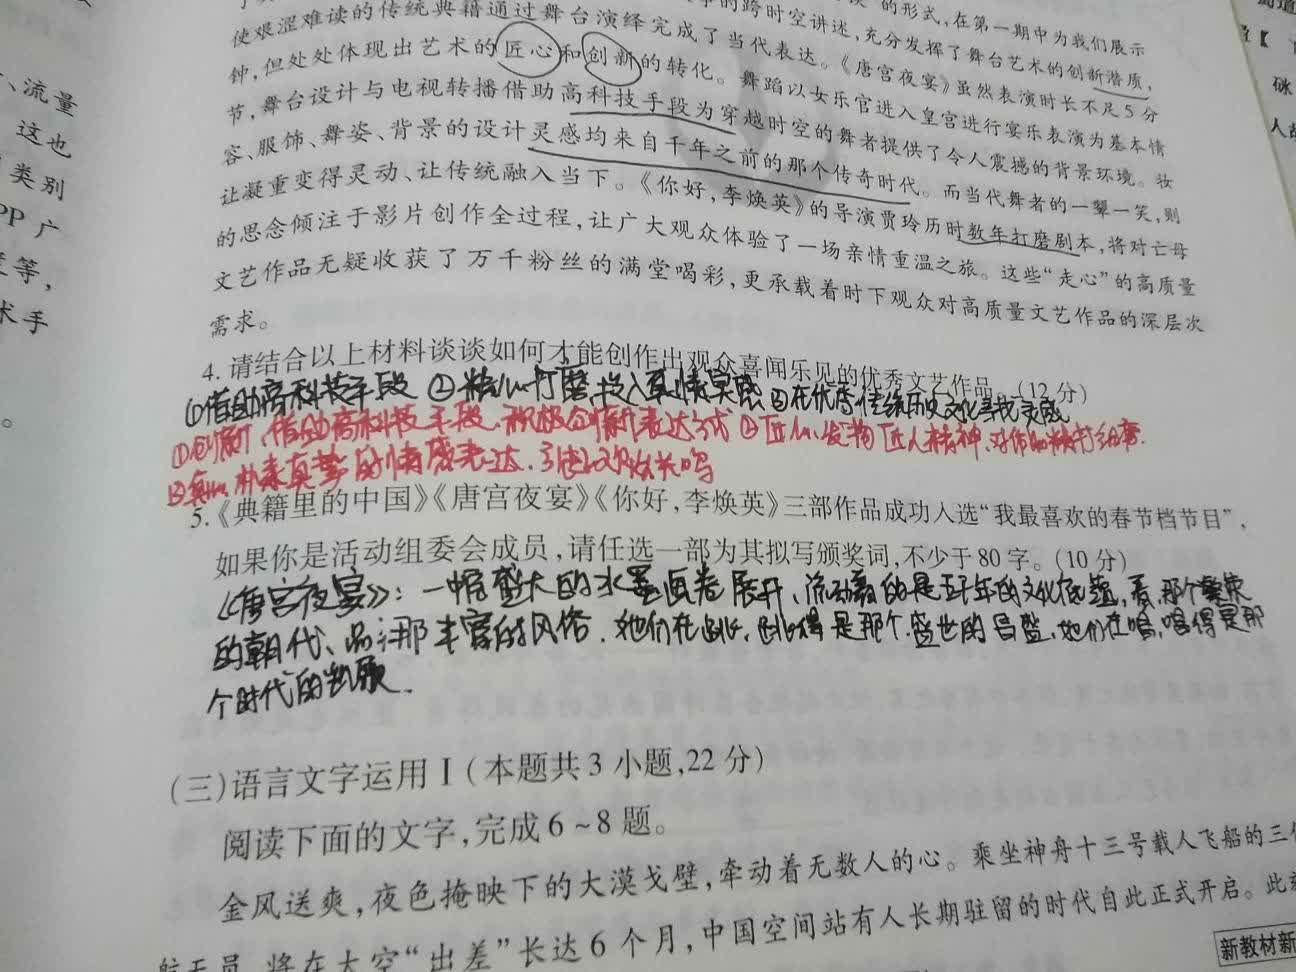 的跨时空讲述,充分发挥了舞台艺术的创新潜质,
的形式,在第一期中为我们展示
使艰涩难读的传统典籍通过舞台演绎完成了当代表达。《唐宫夜宴》虽然表演时长不足5分
钟,但处处体现出艺术的匠心和创新的转化。舞蹈以女乐官进入皇宫进行宴乐表演为基本情
节,舞台设计与电视转播借助高科技手段为穿越时空的舞者提供了令人震撼的背景环境。妆
容、服饰、舞姿、背景的设计灵感均来自千年之前的那个传奇时代。而当代舞者的一颦一笑,则
让凝重变得灵动、让传统融入当下。《你好,李焕英》的导演贾玲历时数年打磨剧本,将对亡母
的思念倾注于影片创作全过程,让广大观众体验了一场亲情重温之旅。这些“走心”的高质量
文艺作品无疑收获了万千粉丝的满堂喝彩,更承载着时下观众对高质量文艺作品的深层次
需求。
4.请结合以上材料谈谈如何才能创作出观众喜闻乐见的优秀文艺作品。(12分)
①借助高科技手段 ②精心打磨,投入真情实感 ③在优秀传统历史文化寻找灵感
①创新,借助高科技手段,积极创新表达方式 ②匠心,发扬匠人精神,对作品精打细磨.
③真心,朴素真挚的情感表达,引起观众共鸣
5.《典籍里的中国》《唐宫夜宴》《你好,李焕英》三部作品成功入选“我最喜欢的春节档节目”,
如果你是活动组委会成员,请任选一部为其拟写颁奖词,不少于80字。(10分)
《唐宫夜宴》:一幅盛大的水墨画卷展开,流动着的是五千年的文化底蕴,看,那个繁荣
的朝代、品味那丰富的风俗.她们在跳,跳得是那个盛世的昌盛,她们在唱,唱得是那
个时代的凯歌.
(三)语言文字运用Ⅰ(本题共3小题,22分)
阅读下面的文字,完成6~8题。
金风送爽,夜色掩映下的大漠戈壁,牵动着无数人的心。乘坐神舟十三号载人飞船的三
航天员,将在太空“出差”长达6个月,中国空间站有人长期驻留的时代自此正式开启。此
新教材新
、流量
这也
类别
PP广
等,
术手
。